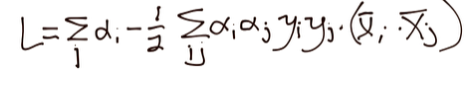 L = Σ_j α_i - 1/2 Σ_ij α_i α_j y_i y_j · (x̄_i · x̄_j)